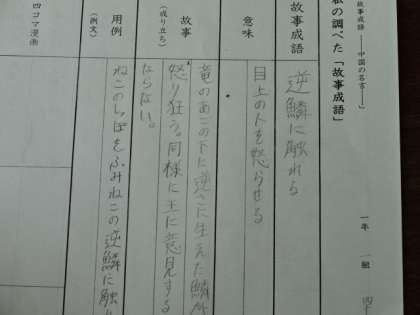 故事成語――中国の名言――」
私の調べた「故事成語」
一年 一組 四十
故事成語
逆鱗に触れる
意味
目上の人を怒らせる
故事
(成り立ち)
竜のあごの下に逆さに生えた鱗
怒り狂う。同様に王に意見する
ならない。
用例
(例文)
ねこのしっぽをふみねこの逆鱗に触れ
四コマ漫画